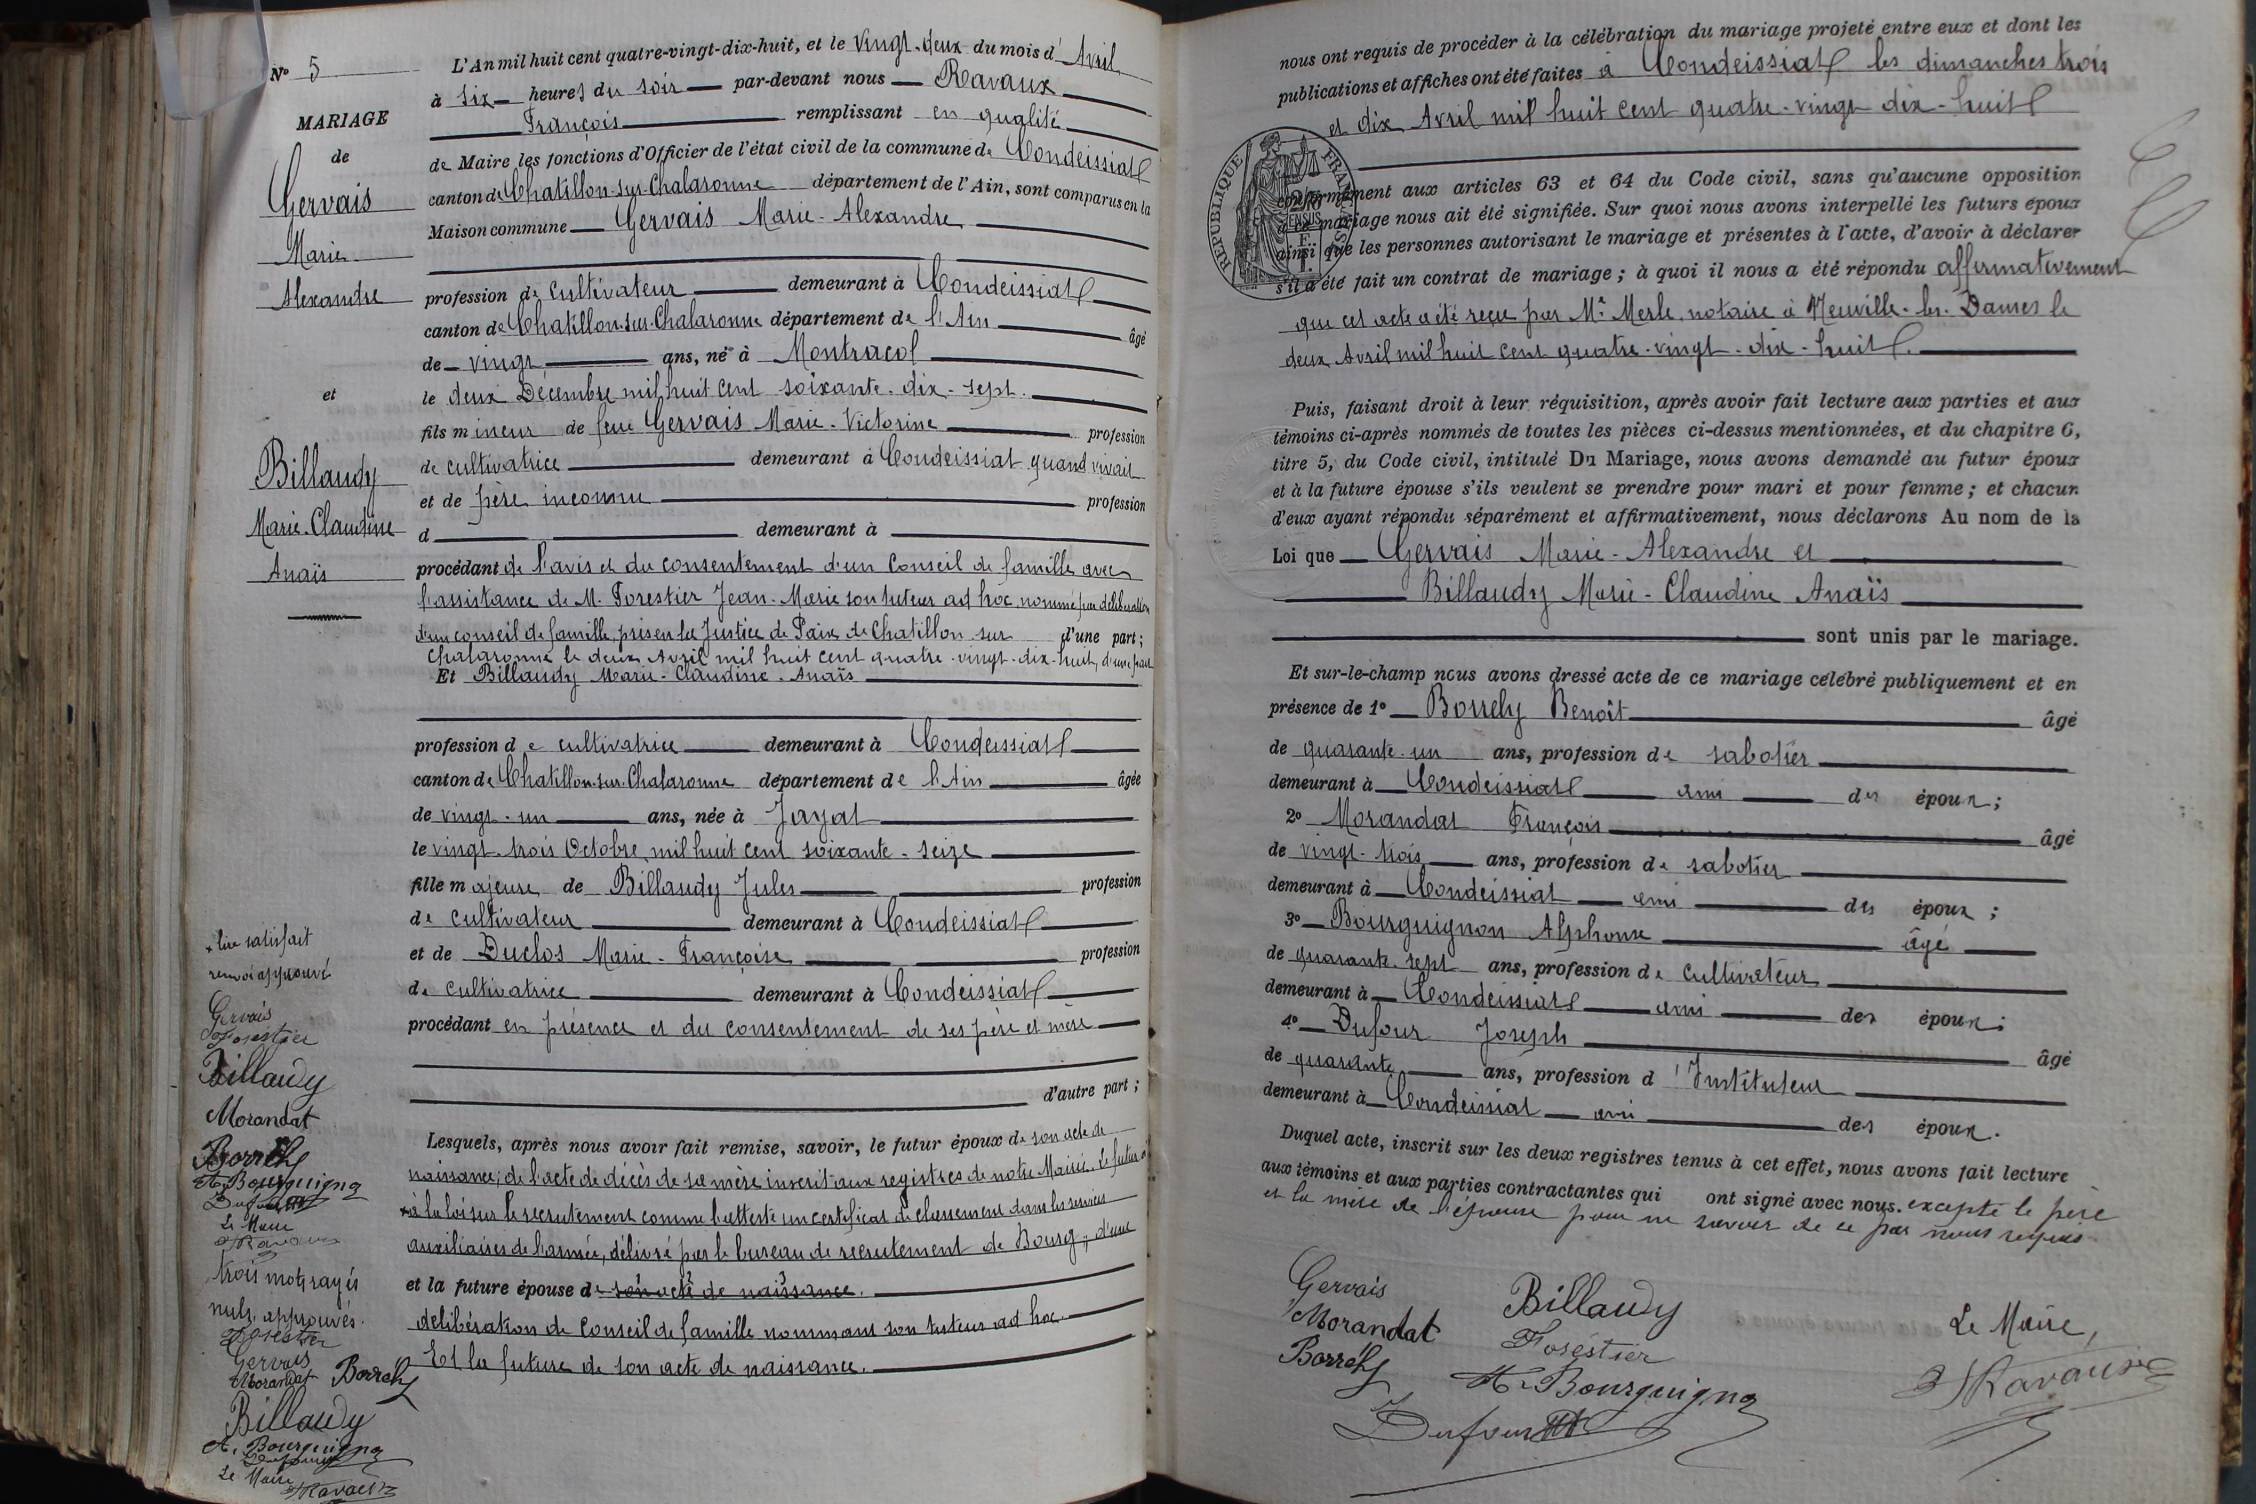 N° 5
MARIAGE
de
Gervais
Marie
Alexandre
et
Billaudy
Marie-Claudine
Anaïs
L'An mil huit cent quatre-vingt-dix-huit, et le vingt-deux du mois d'Avril
à six heures du soir par-devant nous Ravaux
François remplissant en qualité
de Maire les fonctions d'Officier de l'état civil de la commune de Condeissiat
canton de Chatillon-sur-Chalaronne département de l'Ain, sont comparus en la
Maison commune Gervais Marie-Alexandre
profession de cultivateur demeurant à Condeissiat
canton de Chatillon-sur-Chalaronne département de l'Ain âgé
de vingt ans, né à Montracol
le deux Décembre mil huit cent soixante-dix-sept.
fils mineur de feue Gervais Marie-Victorine profession
de cultivatrice demeurant à Condeissiat quand vivait
et de père inconnu profession
d demeurant à
procédant de l'avis et du consentement d'un Conseil de famille avec
l'assistance de M. Forestier Jean-Marie son tuteur ad hoc, nommé par délibération
d'un conseil de famille, pris en la Justice de Paix de Chatillon sur d'une part;
Chalaronne le deux Avril mil huit cent quatre-vingt-dix-huit, d'une part
Et Billaudy Marie-Claudine-Anaïs
profession de cultivatrice demeurant à Condeissiat
canton de Chatillon-sur-Chalaronne département de l'Ain âgée
de vingt-un ans, née à Jayat
le vingt-trois Octobre mil huit cent soixante-seize
fille majeure de Billaudy Jules profession
de cultivateur demeurant à Condeissiat
et de Duclos Marie-Françoise profession
de cultivatrice demeurant à Condeissiat
procédant en présence et du consentement de ses père et mère
d'autre part;
Lesquels, après nous avoir fait remise, savoir, le futur époux de son acte de
naissance; de l'acte de décès de sa mère inscrit aux registres de notre Mairie. Le futur a
+ à la loi sur le recrutement comme l'atteste un certificat de classement dans les services
auxiliaires de l'armée, délivré par le bureau de recrutement de Bourg; d'une
et la future épouse de son acte de naissance.
délibération de Conseil de famille nommant son tuteur ad hoc.
Et la future de son acte de naissance.
+ lire satisfait
renvoi approuvé
Gervais
Forestier
Billaudy
Morandat
Borrely
A. Bourguignon
Dufour
Le Maire
Ravaux
trois mots rayés
nuls, approuvés.
Forestier
Gervais
Morandat Borrely
Billaudy
A. Bourguignon
Dufour
Le Maire
Ravaux
nous ont requis de procéder à la célébration du mariage projeté entre eux et dont les
publications et affiches ont été faites à Condeissiat les dimanches trois
et dix Avril mil huit cent quatre-vingt-dix-huit
RÉPUBLIQUE FRANÇAISE
conformément aux articles 63 et 64 du Code civil, sans qu'aucune opposition
à ce mariage nous ait été signifiée. Sur quoi nous avons interpellé les futurs époux
ainsi que les personnes autorisant le mariage et présentes à l'acte, d'avoir à déclarer
s'il a été fait un contrat de mariage; à quoi il nous a été répondu affirmativement
que cet acte a été reçu par Mr Merle, notaire à Neuville-les-Dames le
deux Avril mil huit cent quatre-vingt-dix-huit.
Puis, faisant droit à leur réquisition, après avoir fait lecture aux parties et aux
témoins ci-après nommés de toutes les pièces ci-dessus mentionnées, et du chapitre 6,
titre 5, du Code civil, intitulé Du Mariage, nous avons demandé au futur époux
et à la future épouse s'ils veulent se prendre pour mari et pour femme; et chacun
d'eux ayant répondu séparément et affirmativement, nous déclarons Au nom de la
Loi que Gervais Marie-Alexandre et
Billaudy Marie-Claudine Anaïs
sont unis par le mariage.
Et sur-le-champ nous avons dressé acte de ce mariage célébré publiquement et en
présence de 1° Borrely Benoît âgé
de quarante-un ans, profession de sabotier
demeurant à Condeissiat ami des époux;
2° Morandat François âgé
de vingt-trois ans, profession de sabotier
demeurant à Condeissiat ami des époux;
3° Bourguignon Alphonse âgé
de quarante-sept ans, profession de cultivateur
demeurant à Condeissiat ami des époux;
4° Dufour Joseph âgé
de quarante ans, profession d'Instituteur
demeurant à Condeissiat ami des époux.
Duquel acte, inscrit sur les deux registres tenus à cet effet, nous avons fait lecture
aux témoins et aux parties contractantes qui ont signé avec nous. excepté le père
et la mère de l'épouse pour ne savoir de ce par nous requis
Gervais
Billaudy
Morandat
Forestier
Le Maire,
Borrely
A. Bourguignon
Ravaux
Dufour